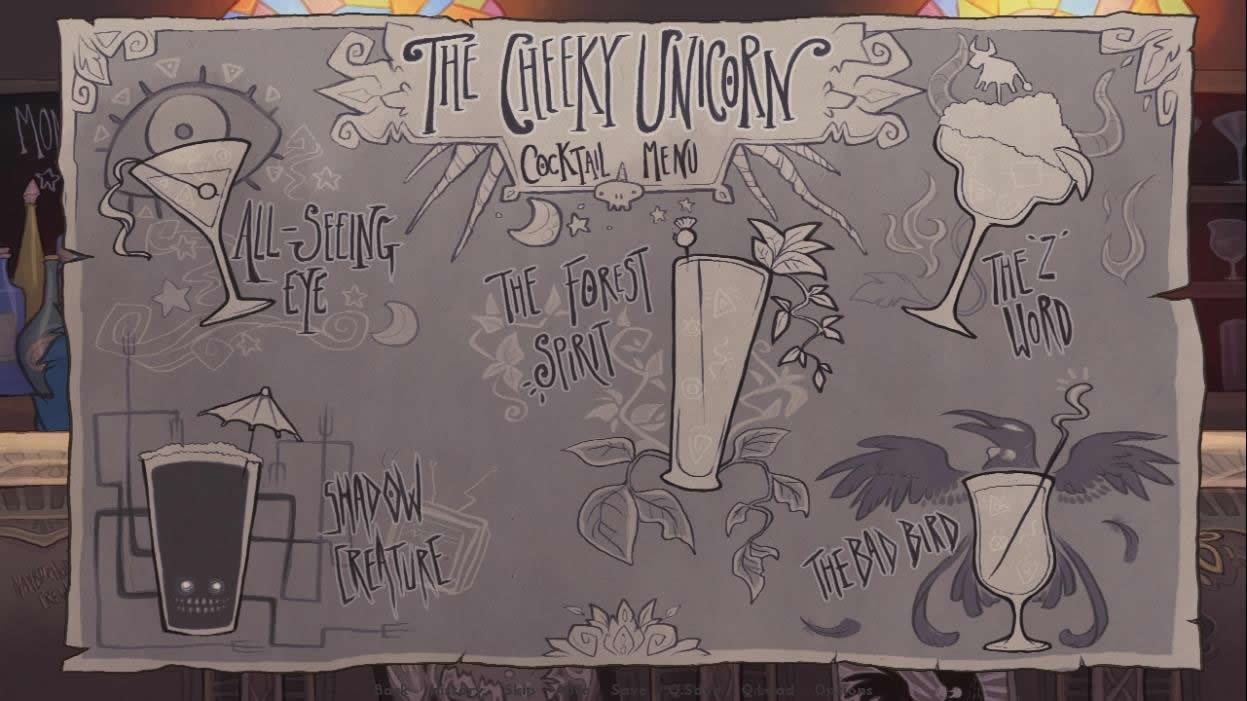 THE CHEEKY UNICORN
COCKTAIL MENU
ALL-SEEING
EYE
THE FOREST
SPIRIT
THE 'Z'
WORD
SHADOW
CREATURE
THE BAD BIRD
MON
Back History Skip Auto Save Q.Save Q.Load Options